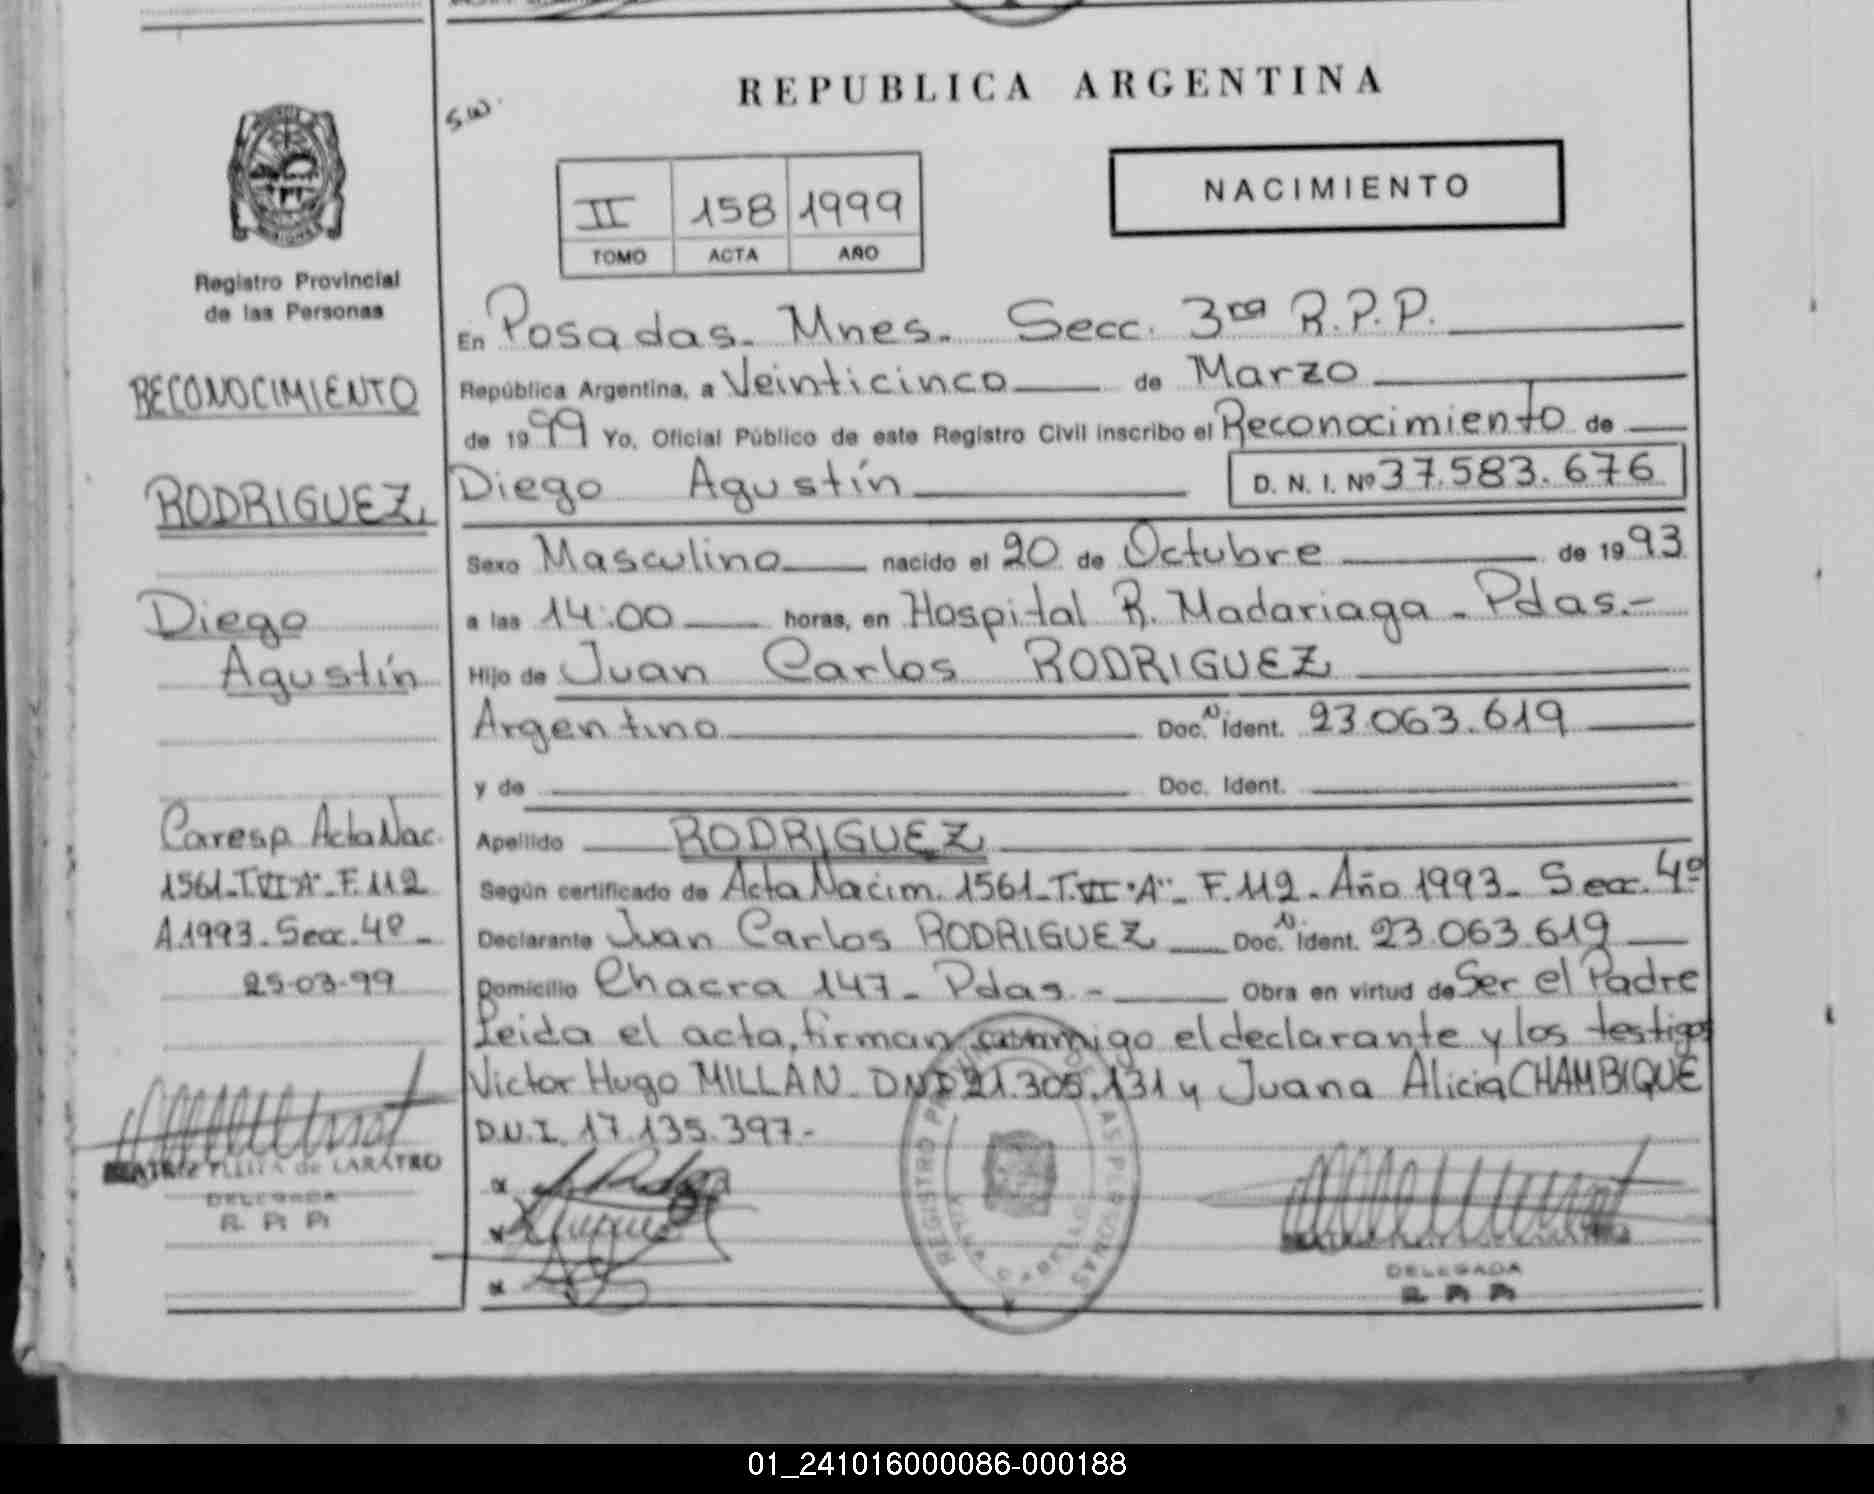 REPUBLICA ARGENTINA
S.W.
NACIMIENTO
II 158 1999
TOMO ACTA AÑO
Registro Provincial
de las Personas
RECONOCIMIENTO
RODRIGUEZ,
Diego
Agustín
Corresp. Acta Nac.
1561-T.VI"A"-F.112
A.1993-Secc.4º-
25-03-99
BEATRIZ de LARATRO
DELEGADA
R. P. P.
En Posadas- Mnes. Secc. 3ra R.P.P.
República Argentina, a Veinticinco de Marzo
de 1999 Yo, Oficial Público de este Registro Civil inscribo el Reconocimiento de
Diego Agustín D. N. I. Nº 37.583.676
Sexo Masculino nacido el 20 de Octubre de 1993
a las 14:00 horas, en Hospital R. Madariaga - Pdas.-
Hijo de Juan Carlos RODRIGUEZ
Argentino Doc. N. Ident. 23.063.619
y de Doc. Ident.
Apellido RODRIGUEZ
Según certificado de Acta Nacim. 1561-T.VI"A"- F.112- Año 1993- Secc. 4º
Declarante Juan Carlos RODRIGUEZ Doc. N. Ident. 23.063.619
Domicilio Chacra 147- Pdas.- Obra en virtud de Ser el Padre
Leida el acta, firman conmigo el declarante y los testigos
Victor Hugo MILLAN- DNI 21.305.131 y Juana Alicia CHAMBIQUE
D.N.I. 17.135.397.-
REGISTRO PERSONAS
DELEGADA
R. P. P.
01_241016000086-000188